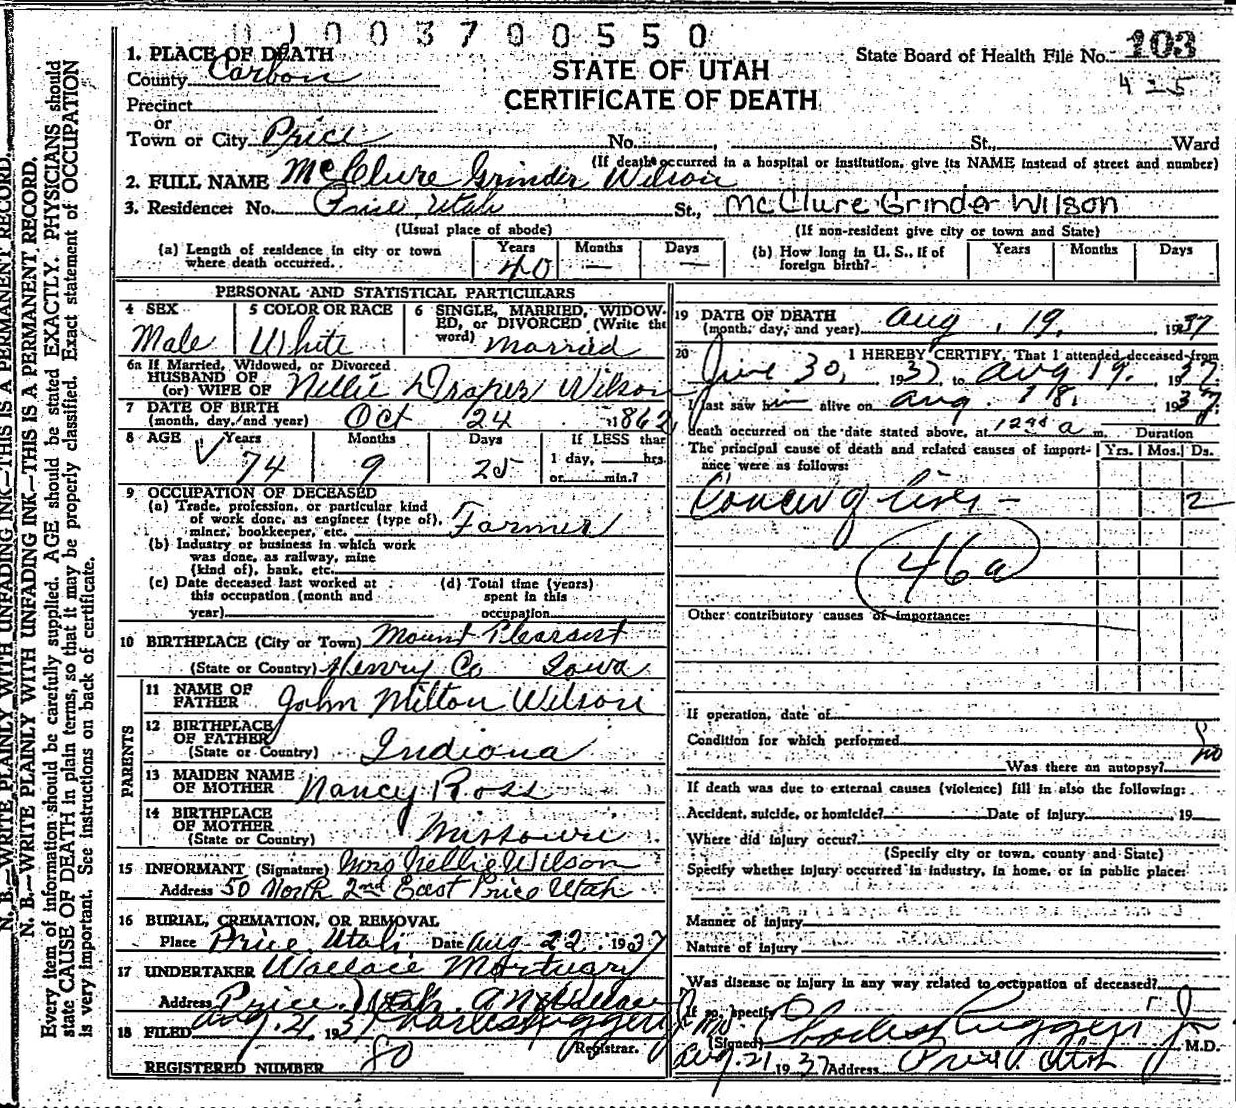 0 1 0 0 3 7 0 0 5 5 0
State Board of Health File No. 103
425
STATE OF UTAH
CERTIFICATE OF DEATH
1. PLACE OF DEATH
County Carbon
Precinct
or
Town or City Price No. St., Ward
(If death occurred in a hospital or institution, give its NAME instead of street and number)
2. FULL NAME McClure Grinder Wilson
3. Residence: No. Price, Utah St., McClure Grinder Wilson
(Usual place of abode) (If non-resident give city or town and State)
(a) Length of residence in city or town where death occurred. Years 40 Months — Days —
(b) How long in U. S., if of foreign birth? Years Months Days
PERSONAL AND STATISTICAL PARTICULARS
4 SEX Male
5 COLOR OR RACE White
6 SINGLE, MARRIED, WIDOWED, or DIVORCED (Write the word) Married
6a If Married, Widowed, or Divorced
HUSBAND OF
(or) WIFE OF Nellie Draper Wilson
7 DATE OF BIRTH
(month, day, and year) Oct 24 1862
8 AGE Years 74 Months 9 Days 25 If LESS than 1 day, hrs. or min.?
9 OCCUPATION OF DECEASED
(a) Trade, profession, or particular kind of work done, as engineer (type of), miner, bookkeeper, etc. Farmer
(b) Industry or business in which work was done, as railway, mine (kind of), bank, etc.
(c) Date deceased last worked at this occupation (month and year)
(d) Total time (years) spent in this occupation
10 BIRTHPLACE (City or Town) Mount Pleasant
(State or Country) Henry Co Iowa
PARENTS
11 NAME OF FATHER John Milton Wilson
12 BIRTHPLACE OF FATHER (State or Country) Indiana
13 MAIDEN NAME OF MOTHER Nancy Ross
14 BIRTHPLACE OF MOTHER (State or Country) Missouri
15 INFORMANT (Signature) Mrs Nellie Wilson
Address 50 North 2nd East Price Utah
16 BURIAL, CREMATION, OR REMOVAL
Place Price, Utah Date Aug 22 1937
17 UNDERTAKER Wallace Mortuary
Address Price, Utah. A N Wallace
18 FILED Aug. 21 1937 Charles Ruggeri
Registrar.
REGISTERED NUMBER 80
19 DATE OF DEATH
(month, day, and year) Aug. 19, 1937
20 I HEREBY CERTIFY, That I attended deceased from
June 30, 1937, to Aug 19, 1937
I last saw him alive on Aug. 18, 1937
death occurred on the date stated above, at a m. Duration
The principal cause of death and related causes of importance were as follows: Yrs. Mos. Ds.
Cancer of liver — 2
46a
Other contributory causes of importance:
If operation, date of
Condition for which performed
Was there an autopsy? no
If death was due to external causes (violence) fill in also the following:
Accident, suicide, or homicide? Date of injury 19
Where did injury occur?
(Specify city or town, county and State)
Specify whether injury occurred in industry, in home, or in public place:
Manner of injury
Nature of injury
Was disease or injury in any way related to occupation of deceased?
If so, specify
(Signed) Charles Ruggeri Jr M.D.
Aug. 21 1937 Address Price, Utah
N. B.—WRITE PLAINLY WITH UNFADING INK—THIS IS A PERMANENT RECORD.
N. B.—WRITE PLAINLY WITH UNFADING INK—THIS IS A PERMANENT RECORD.
Every item of information should be carefully supplied. AGE should be stated EXACTLY. PHYSICIANS should
state CAUSE OF DEATH in plain terms, so that it may be properly classified. Exact statement of OCCUPATION
is very important. See instructions on back of certificate.